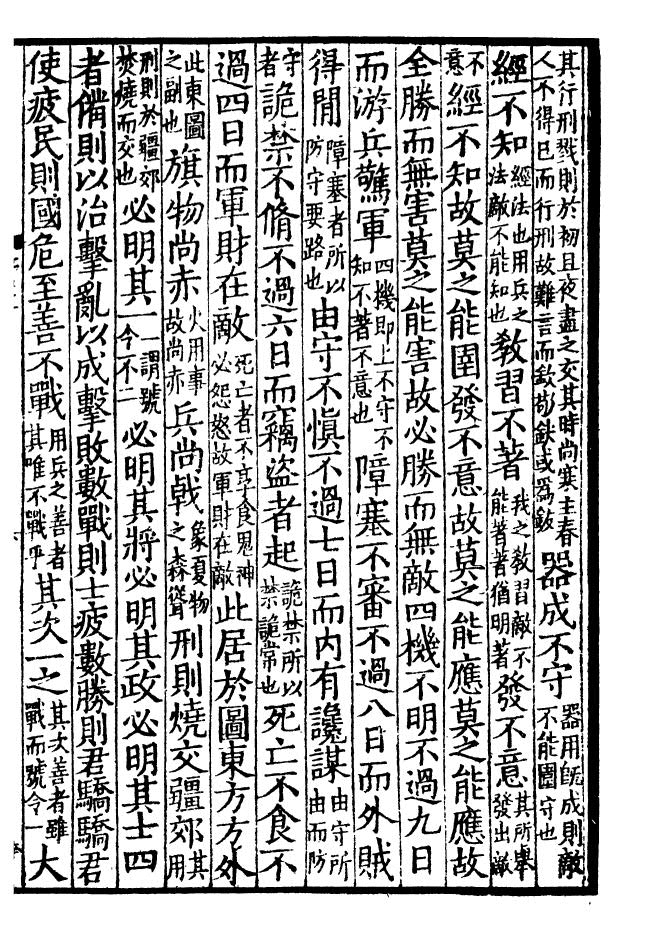 其行刑戮則於初旦夜盡之交其時尚寒主春人不得已而行刑故難言而欽鈌或爲斂器成不守器用旣成則敵不能圍守也
經不知經法也用兵之法敵不能知也敎習不著我之敎習敵不能著著猶明著發不意其所舉發出敵
不意經不知故莫之能圉發不意故莫之能應莫之能應故
全勝而無害莫之能害故必勝而無敵四機不明不過九日
而游兵驚軍四機即上不守不知不著不意也障塞不審不過八日而外賊
得閒障塞者所以防守要路也由守不愼不過七日而内有讒謀由守所由而防
守者詭禁不脩不過六日而竊盜者起詭禁所以禁詭常也死亡不食不
過四日而軍財在敵死亡者不享食鬼神必怨怒故軍財在敵此居於圖東方方外
此東圖之副也旗物尚赤火用事故尚赤兵尚戟象夏物之森聳刑則燒交疆郊其用
刑則於疆郊焚燒而交也必明其一一謂號令不二必明其將必明其政必明其士四
者備則以治擊亂以成擊敗數戰則士疲數勝則君驕驕君
使疲民則國危至善不戰用兵之善者其唯不戰乎其次一之其次善者雖戰而號令一大